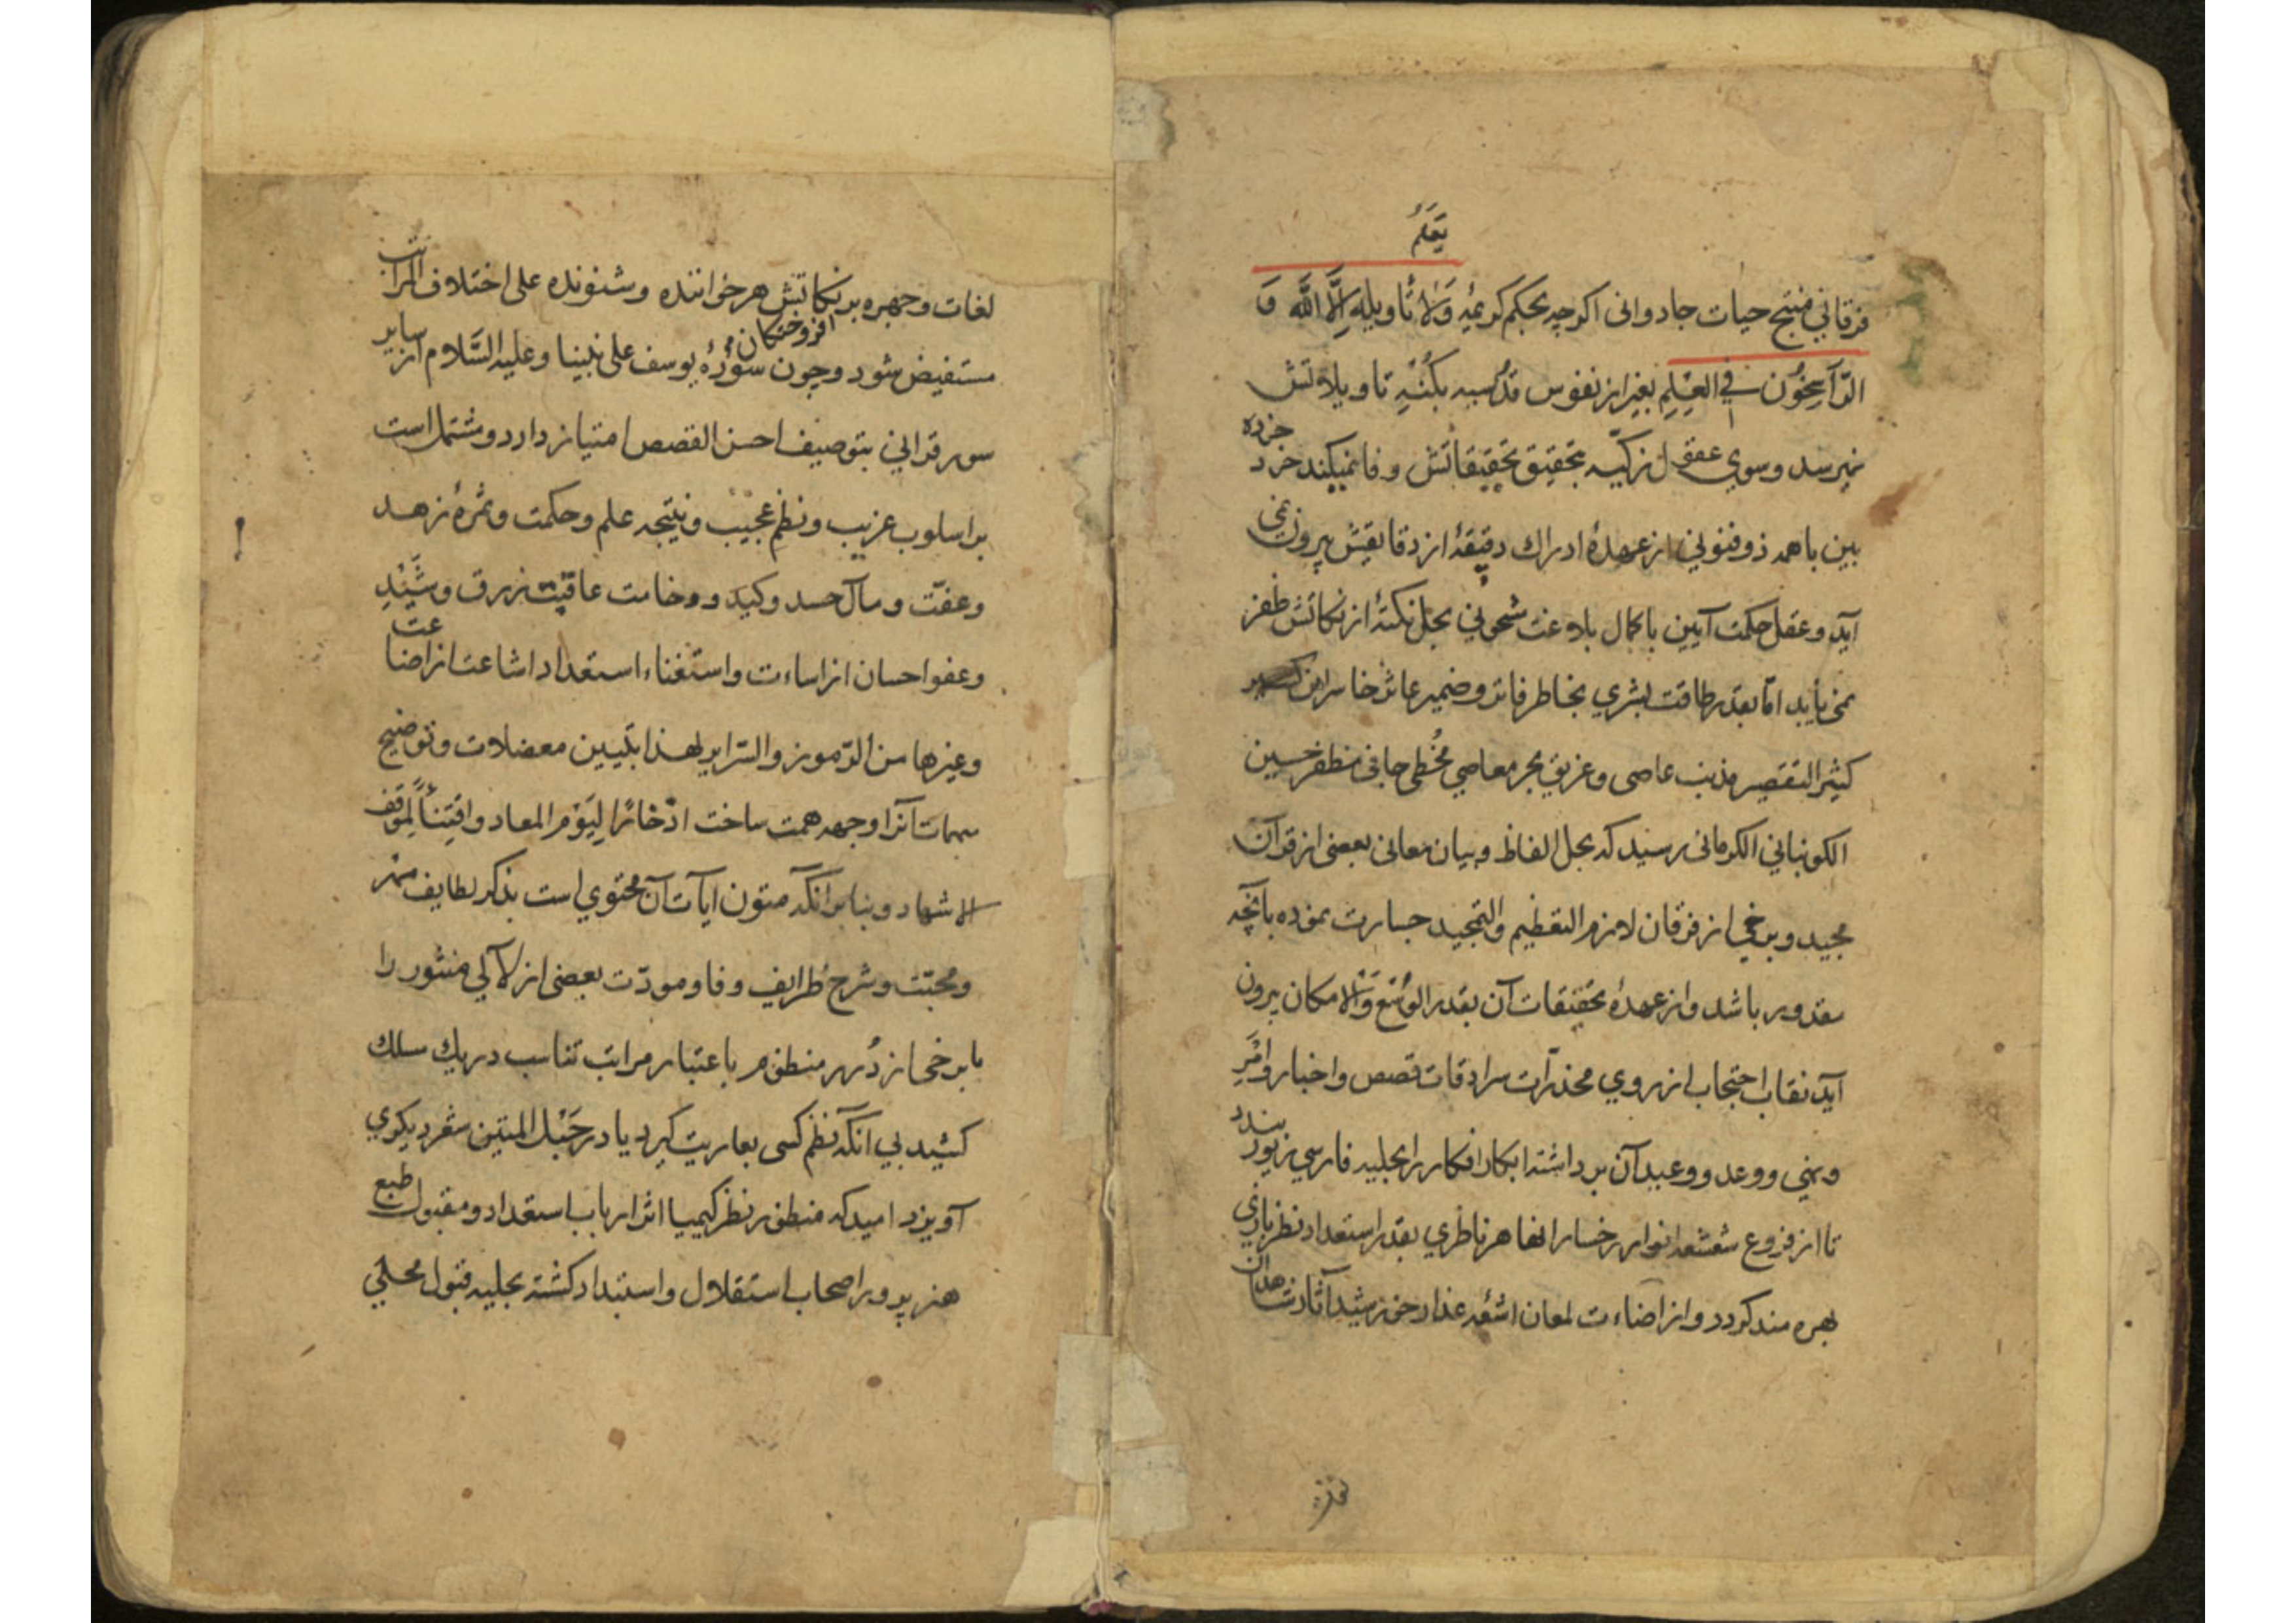 یَعْلَمُ
فرقانی منتج حیات جاودانی اگرچه بحکم کریمهٔ وَلا تأویله اِلَّا اللَّه وَ
الرَّاسِخُون فی العِلِم بغیر از نفوس قدسیه بکُنْهِ تاویلاتش
نمیرسد و سوی عقول زکیّه بتحقیق تحقیقاتش وفا نمیکند خرد خرده
بین با همه ذوفنونی از عهدهٔ ادراك دقیقهٔ از دقایقش بیرون نمی
آید و عقل حکمت آیین با کمال بلاغت شحونی بحل نکتهٔ از نکاتش ظفر
نمی یابد امّا بقدر طاقت بشری بخاطر فاتر و ضمیر عاثر خاسر این
کثیر التقصیر مذنب عاصی و غریق بحر معاصی مُخطی جانی مظفر حسین
الکوبنانی الکرمانی رسید که بحل الفاظ و بیان معانی بعضی از قرآن
مجید و برخی از فرقان لازم التعظیم والتمجید جسارت نموده بآنچه
مقدور باشد و از عهدهٔ تحقیقات آن بقدر الوُسْع وَالامکان بیرون
آید نقاب احتجاب از روی مخدّرات سرادقات قصص و اخبار و امْرِ
و نهی و وعد و وعید آن برداشته ابکار افکار را بحلیه فارسی زیور بندد
تا از فروغ شعشعه انوار رخسار انها هر ناظری بقدر استعداد نظر بازی
بهره مند کردد و از اضاءت لمعان اشعّه عذار خورشید آثار شاهدان
لغات و چهره بر افروختکان نکاتش هر خواننده و شنونده علی اختلاف المراتب
مستفیض شود و چون سُورهٔ یوسف علی نبینا وعلیه السَّلام از سایر
سور قرانی بتوصیف احسن القصص امتیاز دارد و مشتمل است
بر اسلوب غریب و نظم عجیب و نتیجه علم و حکمت و ثمرهٔ زهد
و عفّت و مآل حسد و کید و وخامت عاقبت زرق و شَیْدِ
و عفو احسان از اساءت و استغناء استعداد اشاعت از اضاعت
وغیرها من الرّموز والسّرایر لهذا بتبیین معضلات و توضیح
مبهمات آنرا وجهه همت ساخت ادّخارًا لِیَوْم المعاد و اقتِنأً لِموقف
الاشهاد و بنا بر آنکه متون ایات آن محتوی است بذکر لطایف مهر
و محبّت و شرح طرایف وفا و مودّت بعضی از لآلی منثور را
با برخی از دُرر منظوم باعتبار مراتب تناسب در یك سلك
کشید بی آنکه نظم کسی بعاریت کیرد یا در حَبْل المتین شعر دیکری
آویزد امید که منظور نظر کیمیا اثر ارباب استعداد و مقبول طبع
هنر پرور اصحاب استقلال و استبداد کشته بحلیه قبول محلّی